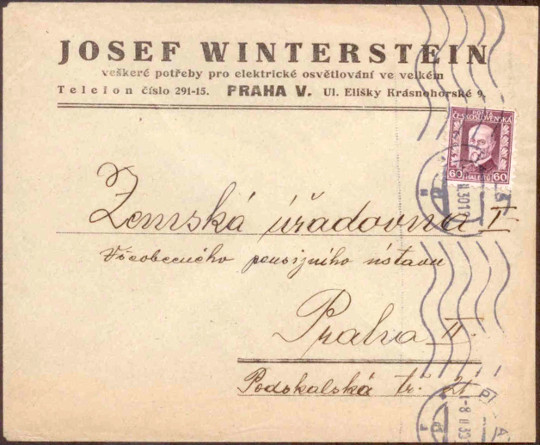 JOSEF WINTERSTEIN
veškeré potřeby pro elektrické osvětlování ve velkém
Telefon číslo 291-15. PRAHA V. Ul. Elišky Krásnohorské 9.
POŠTA
ČESKOSLOVENSKÁ
60 HALÉŘŮ 60
Zemská úřadovna I
Všeobecného pensijního ústavu
Praha II.
Podskalská tř.